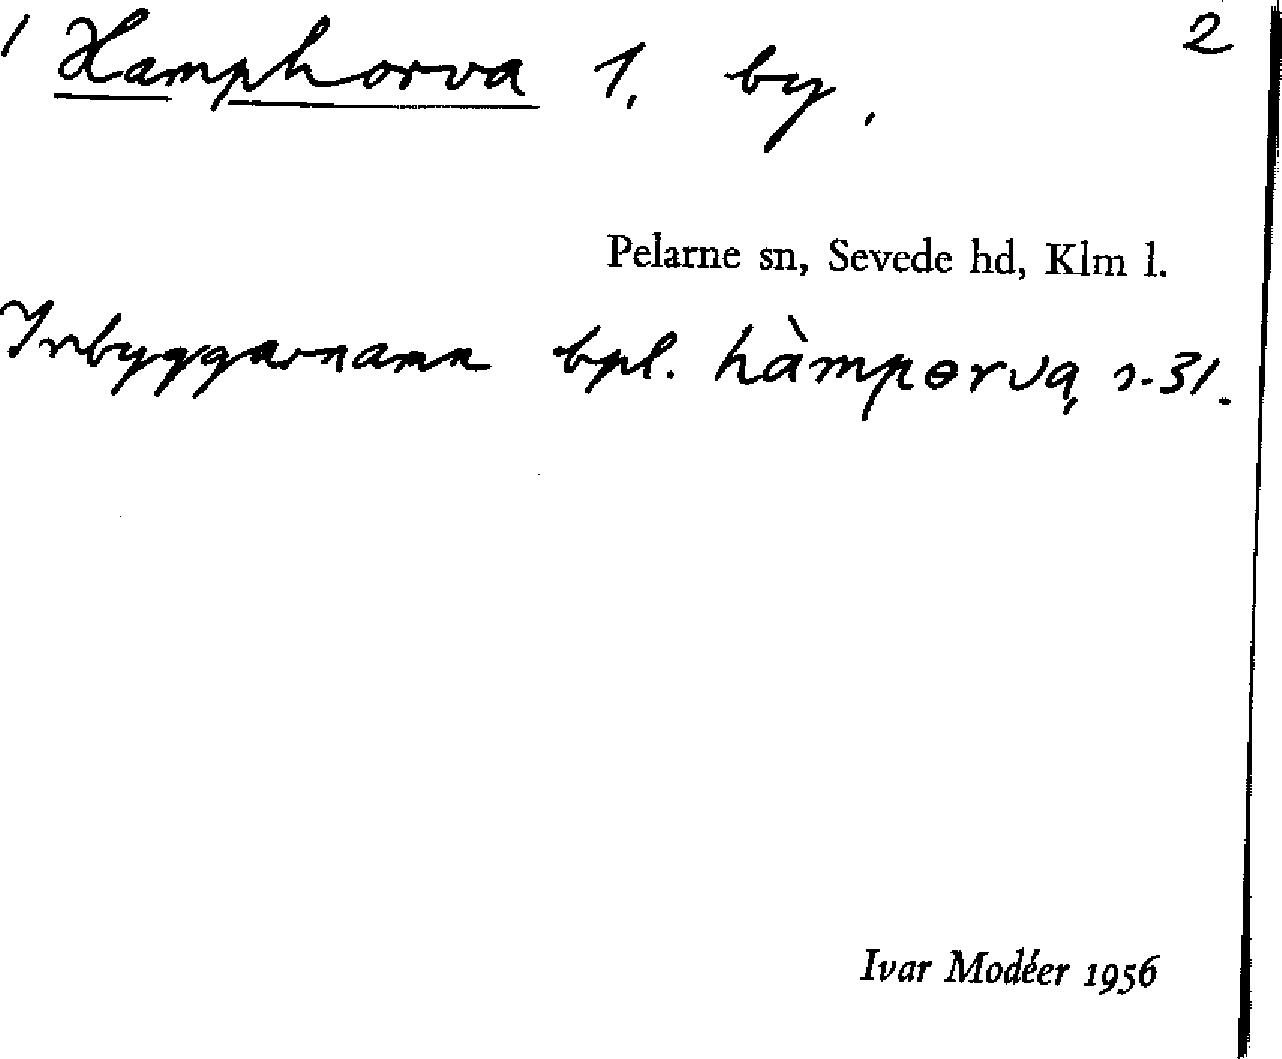 / Hamphorva 1. by. 2
Pelarne sn, Sevede hd, Klm l.
Inbyggarnamn bpl. hàmpɵrvą s. 31.
Ivar Modéer 1956